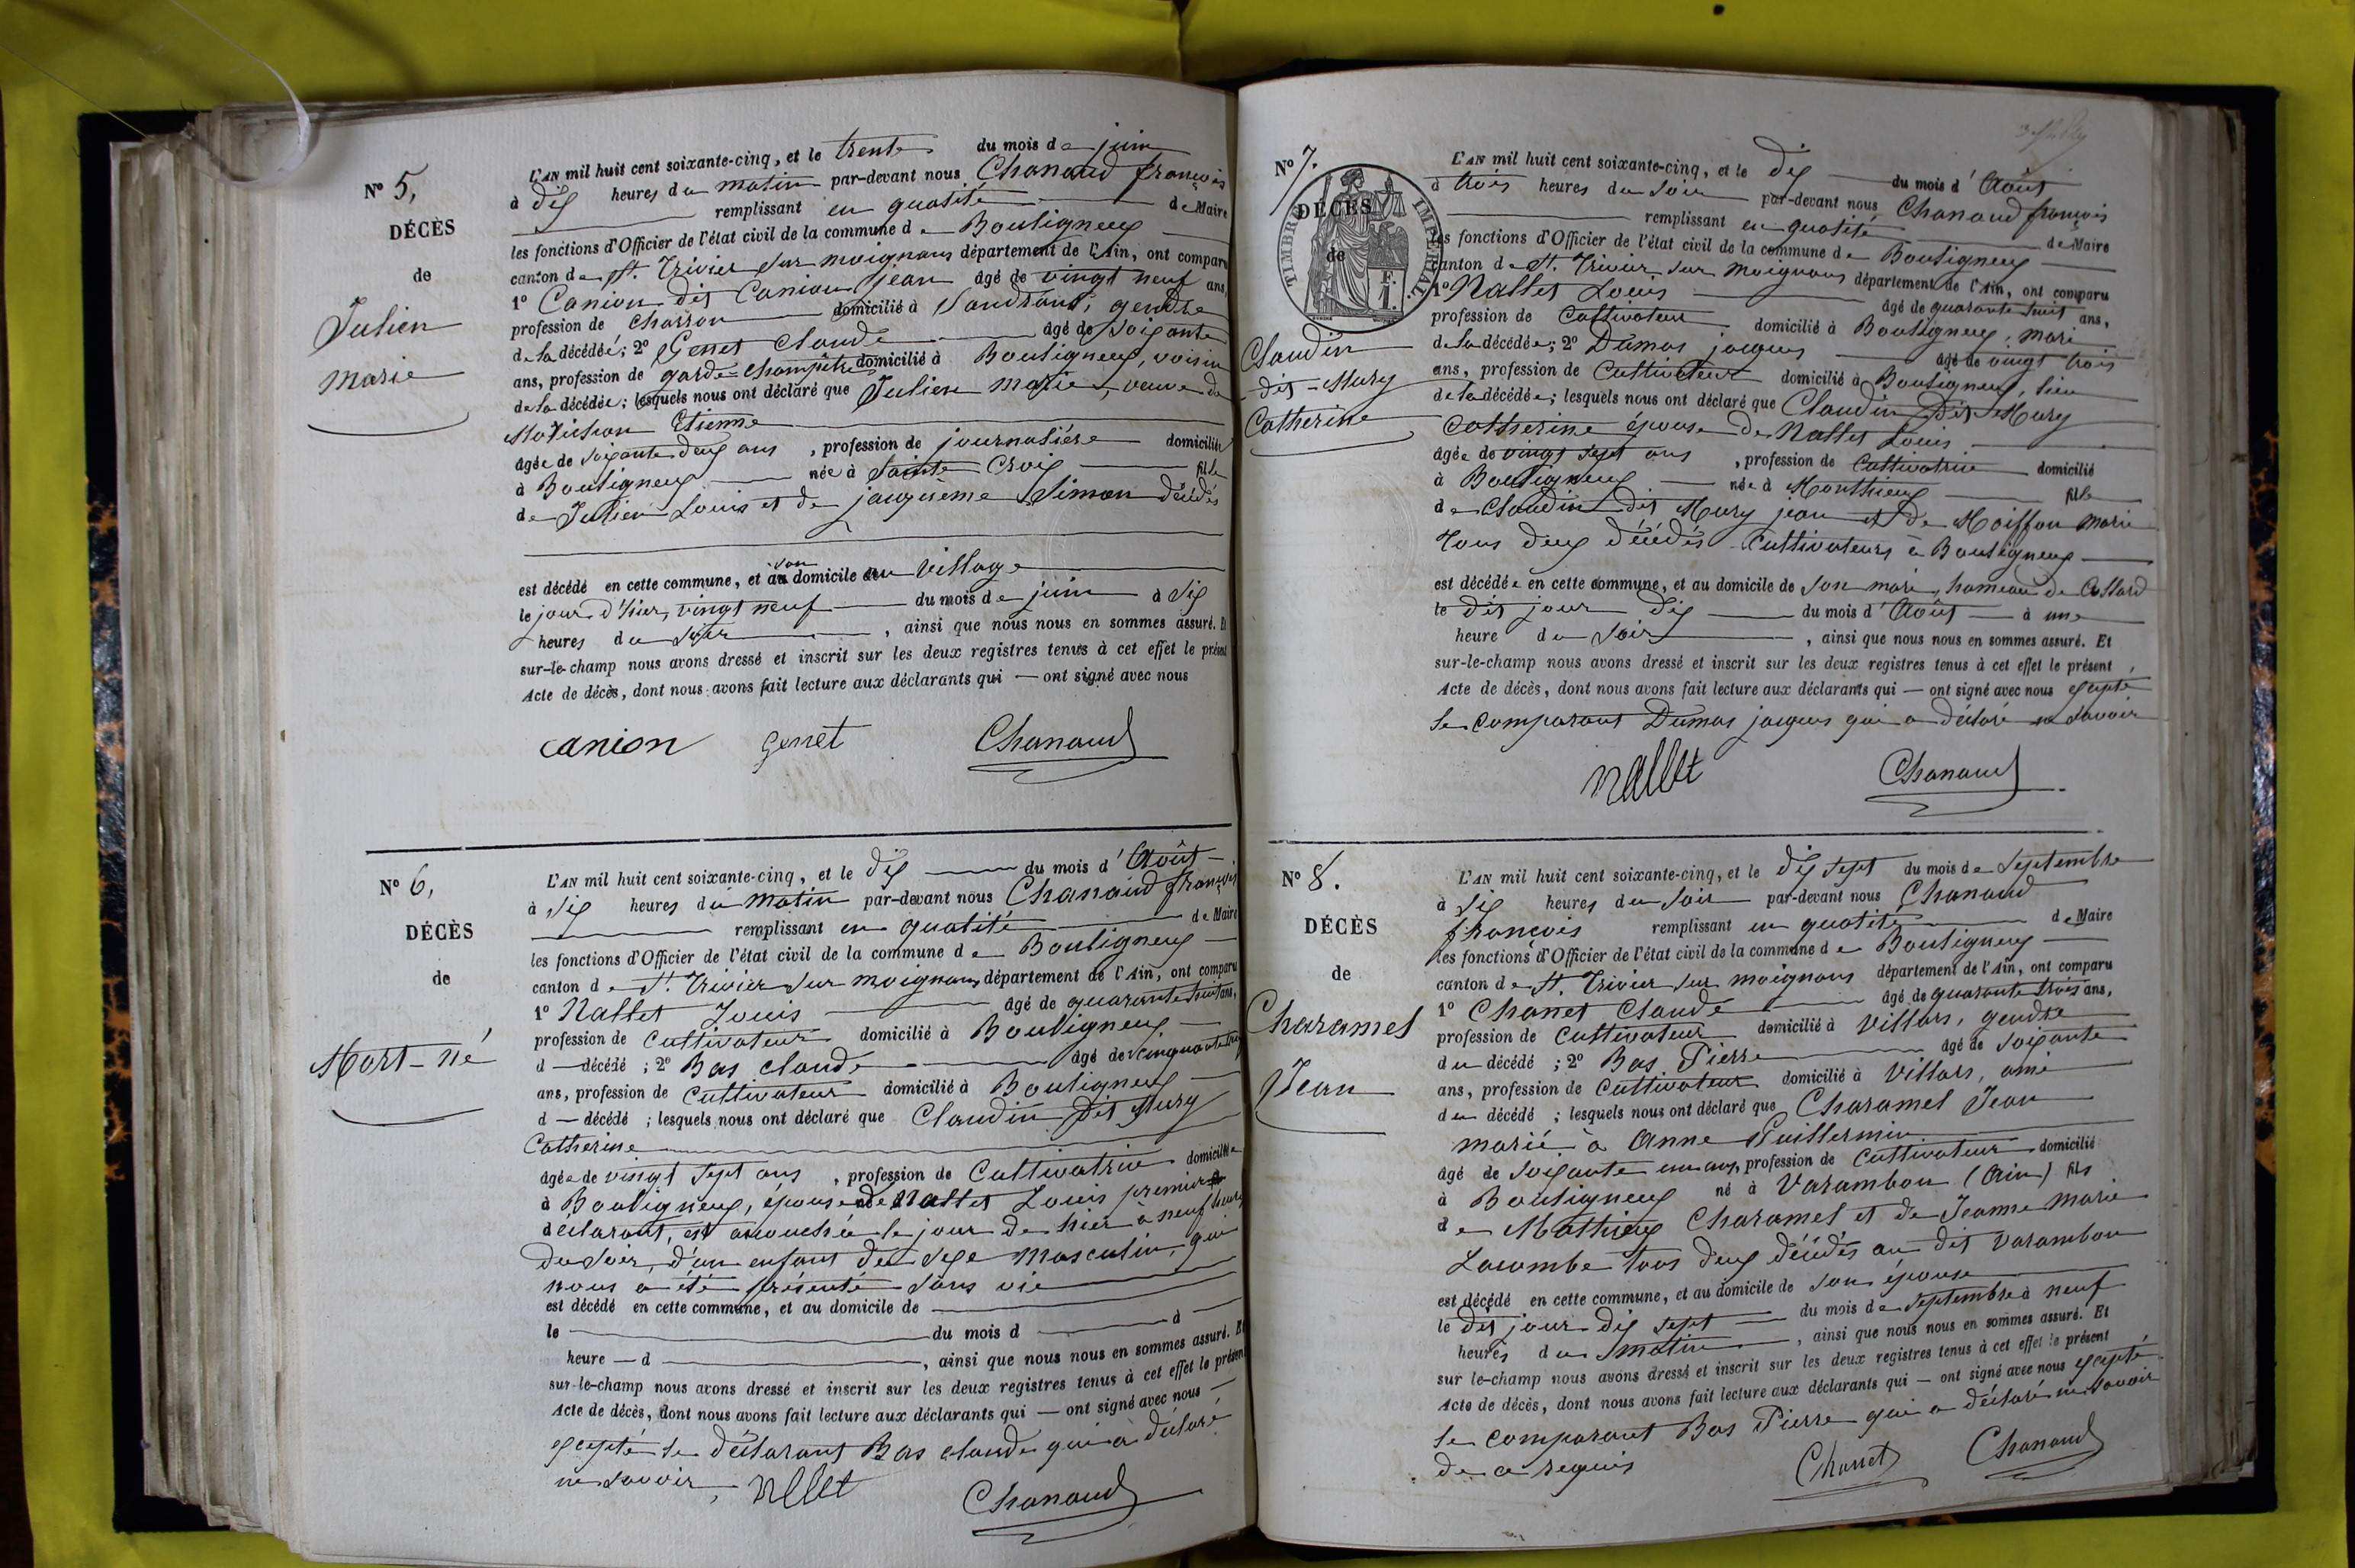 N° 5,
DÉCÈS
de
Julien
marie
L'AN mil huit cent soixante-cinq, et le trente du mois de juin
à dix heures du matin par-devant nous Chanaud françois
remplissant en qualité de Maire
les fonctions d'Officier de l'état civil de la commune de Bouligneux
canton de St. Trivier sur moignans département de l'Ain, ont comparu
1° Canion dit Canion jean âgé de vingt neuf ans,
profession de charron domicilié à Sandrans, gendre
de la décédée; 2° Genet Claude âgé de soixante
ans, profession de garde-champêtre domicilié à Bouligneux, voisin
de la décédée; lesquels nous ont déclaré que Julien marie, veuve de
Etienne
âgée de soixante deux ans, profession de journalière domiciliée
à Bouligneux née à Sainte Croix fille
de Julien Louis et de jacquème Simon décédés
est décédé en cette commune, et au son domicile au village
le jour d'hier, vingt neuf du mois de juin à six
heures du soir, ainsi que nous nous en sommes assuré. Et
sur-le-champ nous avons dressé et inscrit sur les deux registres tenus à cet effet le présent
Acte de décès, dont nous avons fait lecture aux déclarants qui — ont signé avec nous
canion genet Chanaud
N° 6,
DÉCÈS
de
Mort-né
L'AN mil huit cent soixante-cinq, et le dix du mois d'Août
à six heures du matin par-devant nous Chanaud françois
remplissant en qualité de Maire
les fonctions d'Officier de l'état civil de la commune de Bouligneux
canton de St. Trivier sur moignans département de l'Ain, ont comparu
1° Nallet Louis âgé de quarante huit ans,
profession de Cultivateur domicilié à Bouligneux
d — décédé; 2° Bas claude âgé de cinquante
ans, profession de Cultivateur domicilié à Bouligneux
d — décédé; lesquels nous ont déclaré que Claudin dit Mury
Catherine
âgée de vingt sept ans, profession de Cultivatrice domiciliée
à Bouligneux, épouse de Nallet Louis premier
déclarant, est accouchée le jour de hier à neuf heures
du soir, d'un enfant du sexe masculin, qui
nous a été présenté sans vie
est décédé en cette commune, et au domicile de
le du mois d à
heure — d, ainsi que nous nous en sommes assuré. Et
sur-le-champ nous avons dressé et inscrit sur les deux registres tenus à cet effet le présent
Acte de décès, dont nous avons fait lecture aux déclarants qui — ont signé avec nous
excepté le déclarant Bas claude qui a déclaré
ne savoir, nallet
Chanaud
N° 7.
DÉCÈS
de
TIMBRE IMPÉRIAL
F.
1.
Claudin
dit-Mury
Catherine
L'AN mil huit cent soixante-cinq, et le dix du mois d'Août
à trois heures du soir par-devant nous Chanaud françois
remplissant en qualité de Maire
les fonctions d'Officier de l'état civil de la commune de Bouligneux
canton de St. Trivier sur moignans département de l'Ain, ont comparu
1° Nallet Louis âgé de quarante huit ans,
profession de Cultivateur domicilié à Bouligneux, mari
de la décédée; 2° Dumas jacques âgé de vingt trois
ans, profession de Cultivateur domicilié à Bouligneux,
de la décédée; lesquels nous ont déclaré que Claudin dit Mury
Catherine épouse de Nallet Louis
âgée de vingt sept ans, profession de Cultivatrice domicilié
à Bouligneux née à Monthieux fille
de Claudin dit Mury jean et de Moiffon marie
tous deux décédés Cultivateurs à Bouligneux
est décédée en cette commune, et au domicile de son mari, hameau de
le dit jour dix du mois d'Août à une
heure du soir, ainsi que nous nous en sommes assuré. Et
sur-le-champ nous avons dressé et inscrit sur les deux registres tenus à cet effet le présent
Acte de décès, dont nous avons fait lecture aux déclarants qui — ont signé avec nous excepté
le comparant Dumas jacques qui a déclaré ne savoir
nallet Chanaud
N° 8.
DÉCÈS
de
Charamel
Jean
L'AN mil huit cent soixante-cinq, et le dix sept du mois de Septembre
à six heures du soir par-devant nous Chanaud
françois remplissant en qualité de Maire
les fonctions d'Officier de l'état civil de la commune de Bouligneux
canton de St. Trivier sur moignans département de l'Ain, ont comparu
1° Chanet Claude âgé de quarante trois ans,
profession de Cultivateur domicilié à Villars, gendre
du décédé; 2° Bas Pierre âgé de soixante
ans, profession de Cultivateur domicilié à Villars, ami
du décédé; lesquels nous ont déclaré que Charamel Jean
marié à Anne Guillermin
âgé de soixante un ans, profession de Cultivateur domicilié
à Bouligneux né à Varambon (Ain) fils
de Mathieu Charamel et de Jeanne marie
Lacombe tous deux décédés au dit Varambon
est décédé en cette commune, et au domicile de son épouse
le dit jour dix sept du mois de Septembre à neuf
heures du matin, ainsi que nous nous en sommes assuré. Et
sur le-champ nous avons dressé et inscrit sur les deux registres tenus à cet effet le présent
Acte de décès, dont nous avons fait lecture aux déclarants qui — ont signé avec nous excepté
le comparant Bas Pierre qui a déclaré ne savoir
de ce requis Chanet Chanaud